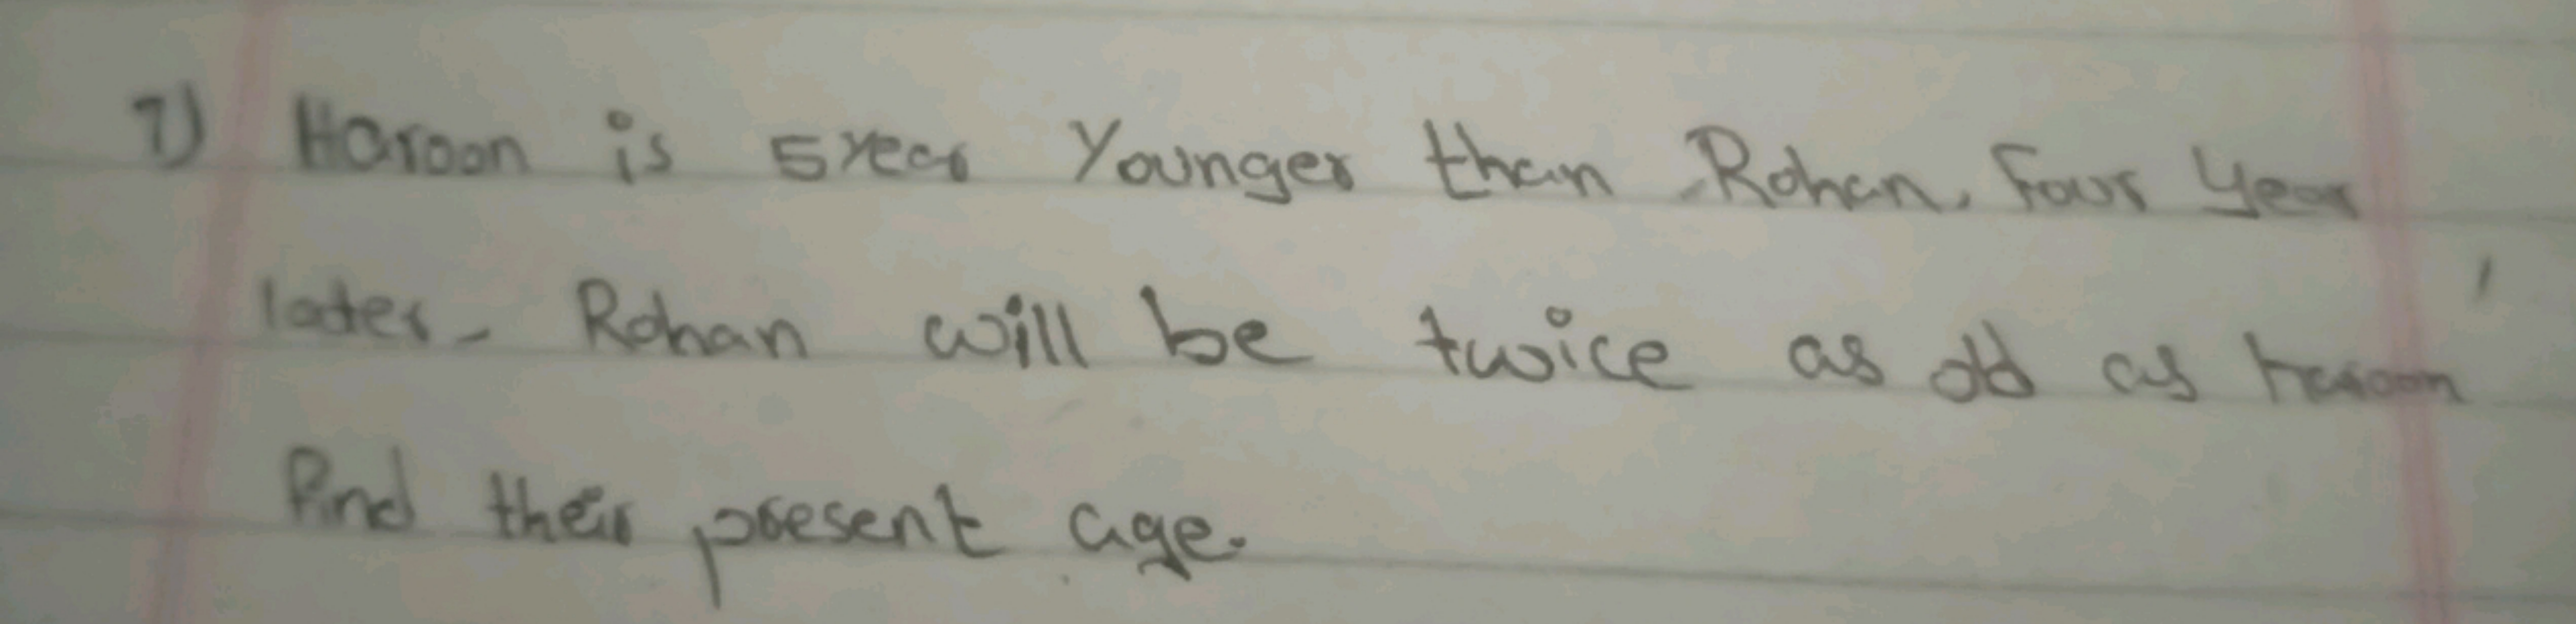 7) Haroon is 5 year Younger than Rohan. Four year
later- Rohan will be twice as old as haroon
Find their present age.